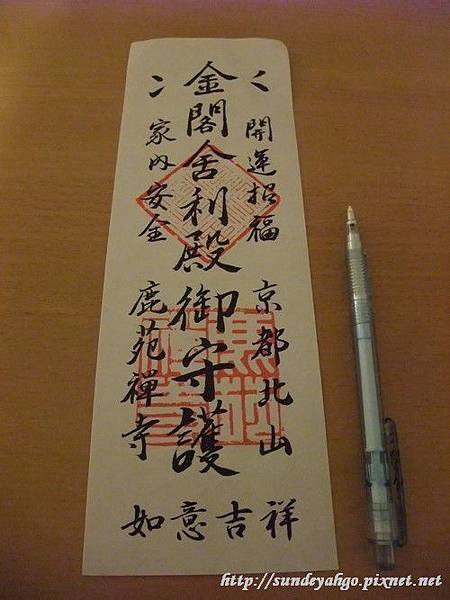 開運招福
京都北山
金閣舍利殿御守護
家内安全
鹿苑禅寺
如意吉祥
http://sundeyahgo.pixnet.net